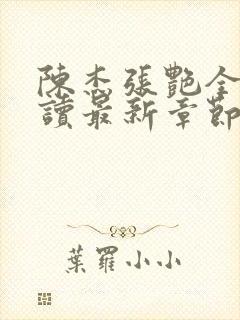 陳杰張艷全
讀最新章節
葉羅小小